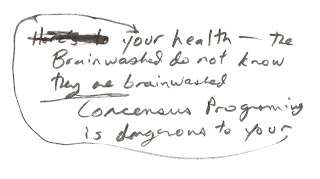 Here's to your health — the
Brainwashed do not know
they are brainwashed
Concensus Programing
is dangerous to your